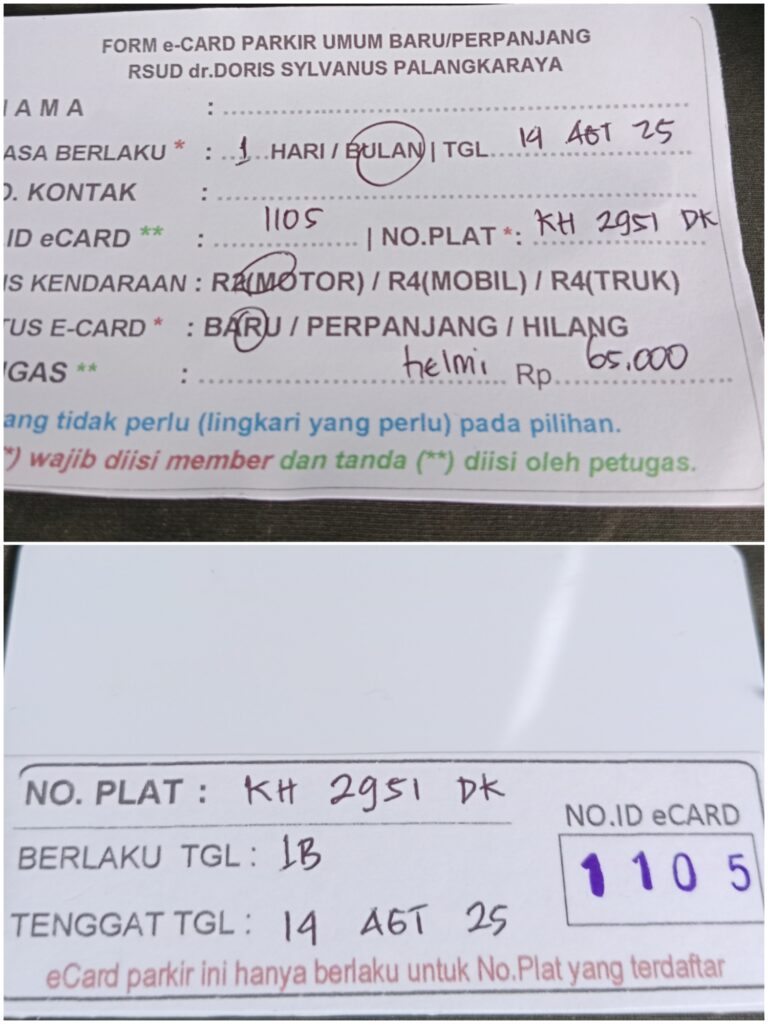 FORM e-CARD PARKIR UMUM BARU/PERPANJANG
RSUD dr.DORIS SYLVANUS PALANGKARAYA
NAMA :
ASA BERLAKU * : 1 HARI / BULAN | TGL 19 AGT 25
O. KONTAK :
ID eCARD ** : 1105 | NO.PLAT *: KH 2951 DK
IS KENDARAAN : R2(MOTOR) / R4(MOBIL) / R4(TRUK)
TUS E-CARD * : BARU / PERPANJANG / HILANG
GAS ** : helmi Rp 65.000
ang tidak perlu (lingkari yang perlu) pada pilihan.
*) wajib diisi member dan tanda (**) diisi oleh petugas.
NO. PLAT : KH 2951 DK
BERLAKU TGL : 1B
TENGGAT TGL : 19 AGT 25
NO.ID eCARD
1105
eCard parkir ini hanya berlaku untuk No.Plat yang terdaftar